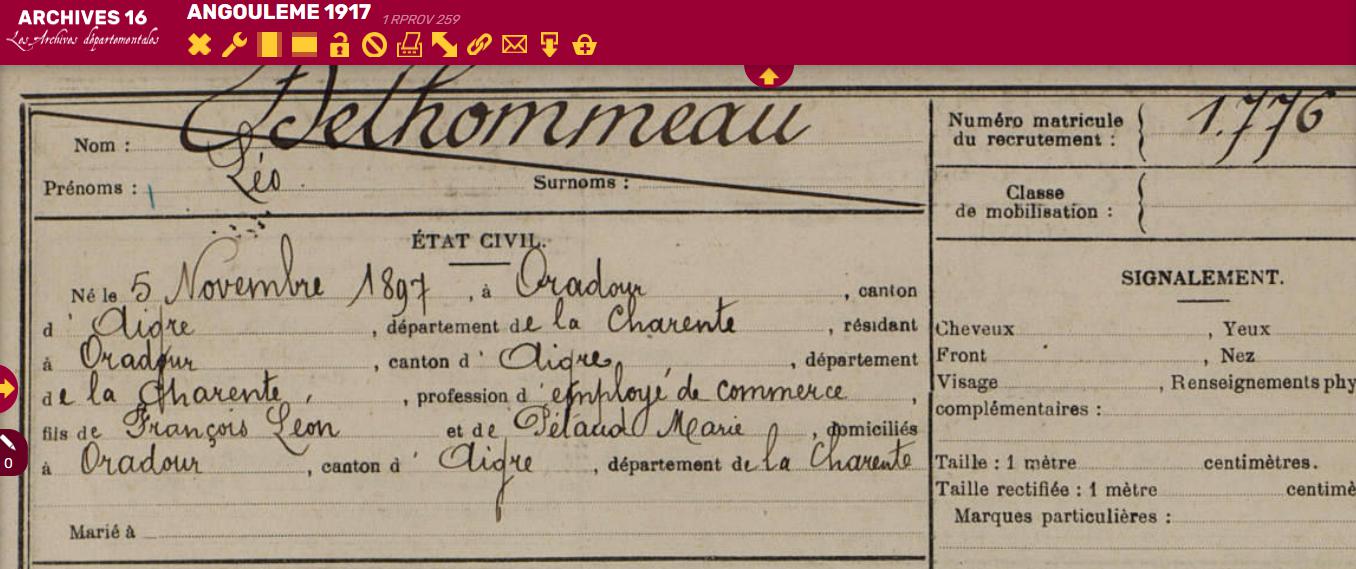 ARCHIVES 16
Les Archives départementales
ANGOULEME 1917 1 RPROV 259
Nom : Delhommeau
Prénoms : Léo Surnoms :
Numéro matricule du recrutement : 1.776
Classe de mobilisation :
ÉTAT CIVIL.
Né le 5 Novembre 1897, à Oradour, canton
d'Aigre, département de la Charente, résidant
à Oradour, canton d'Aigre, département
de la Charente, profession d'employé de commerce,
fils de François Léon et de Pélaud Marie, domiciliés
à Oradour, canton d'Aigre, département de la Charente
Marié à
SIGNALEMENT.
Cheveux , Yeux
Front , Nez
Visage , Renseignements phy
complémentaires :
Taille : 1 mètre centimètres.
Taille rectifiée : 1 mètre centimè
Marques particulières :
0